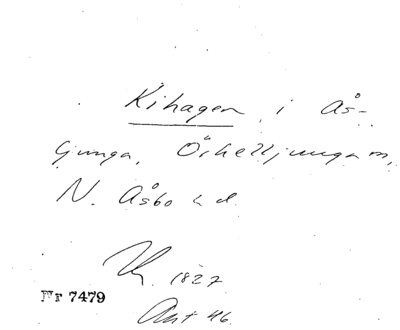 Kihagen i Ås-
ljunga, Örkelljunga sn,
N. Åsbo hd
1827.
Nr 7479
Akt 46.